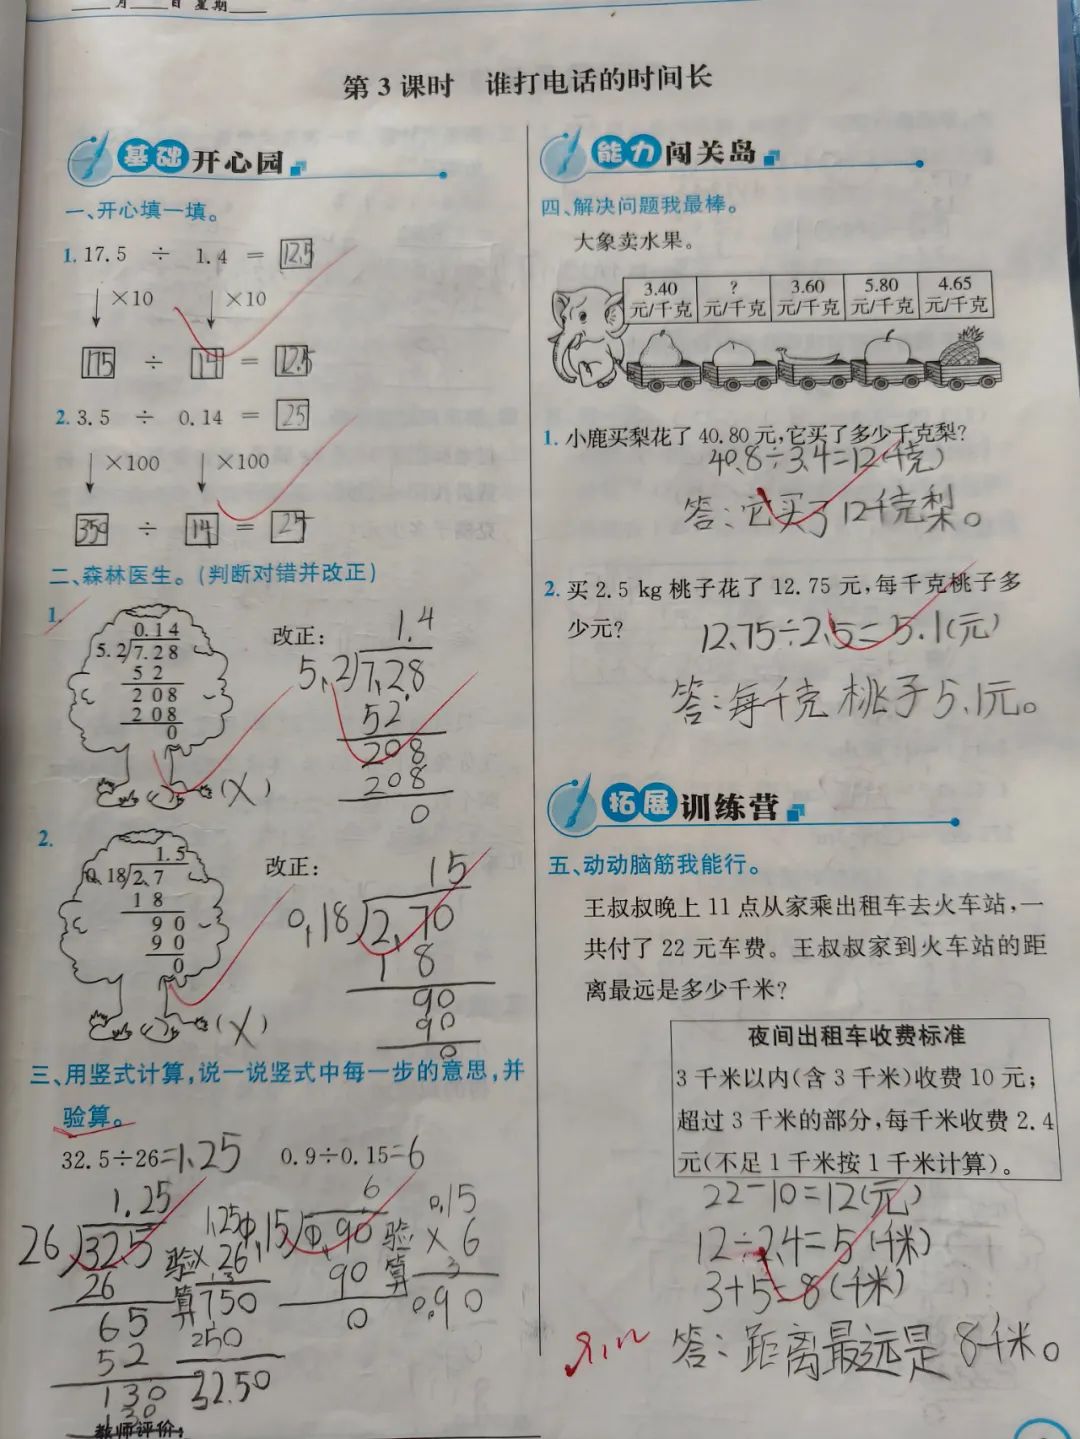 月 日 星期
第3课时 谁打电话的时间长
基础开心园
一、开心填一填。
1. 17.5 ÷ 1.4 = 12.5
×10 ×10
175 ÷ 14 = 12.5
2. 3.5 ÷ 0.14 = 25
×100 ×100
350 ÷ 14 = 25
二、森林医生。(判断对错并改正)
1.
0.14
5.2 7.28
5 2
2 0 8
2 0 8
0
(X)
改正:
1.4
5.2 7.28
52
208
208
0
2.
1.5
0.18 2.7
1 8
9 0
9 0
0
(X)
改正:
15
0.18 2.70
1 8
90
90
0
三、用竖式计算,说一说竖式中每一步的意思,并
验算。
32.5÷26=1.25 0.9÷0.15=6
1.25
26 32.5
26
65
52
130
130
验算
1.25
×26
750
250
32.50
6
0.15 0.90
90
0
验算
0.15
×6
3
0.90
教师评价:
能力闯关岛
四、解决问题我最棒。
大象卖水果。
3.40 ? 3.60 5.80 4.65
元/千克 元/千克 元/千克 元/千克 元/千克
1. 小鹿买梨花了40.80元,它买了多少千克梨?
40.8÷3.4=12(千克)
答:它买了12千克梨。
2. 买2.5 kg桃子花了12.75元,每千克桃子多
少元?
12.75÷2.5=5.1(元)
答:每千克桃子5.1元。
拓展训练营
五、动动脑筋我能行。
王叔叔晚上11点从家乘出租车去火车站,一
共付了22元车费。王叔叔家到火车站的距
离最远是多少千米?
夜间出租车收费标准
3千米以内(含3千米)收费10元;
超过3千米的部分,每千米收费2.4
元(不足1千米按1千米计算)。
22-10=12(元)
12÷2.4=5(千米)
3+5=8(千米)
答:距离最远是8千米。